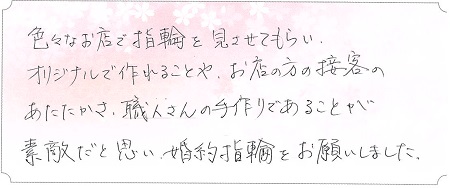 色々なお店で指輪を見させてもらい、
オリジナルで作れることや、お店の方の接客の
あたたかさ、職人さんの手作りであることが
素敵だと思い、婚約指輪をお願いしました。